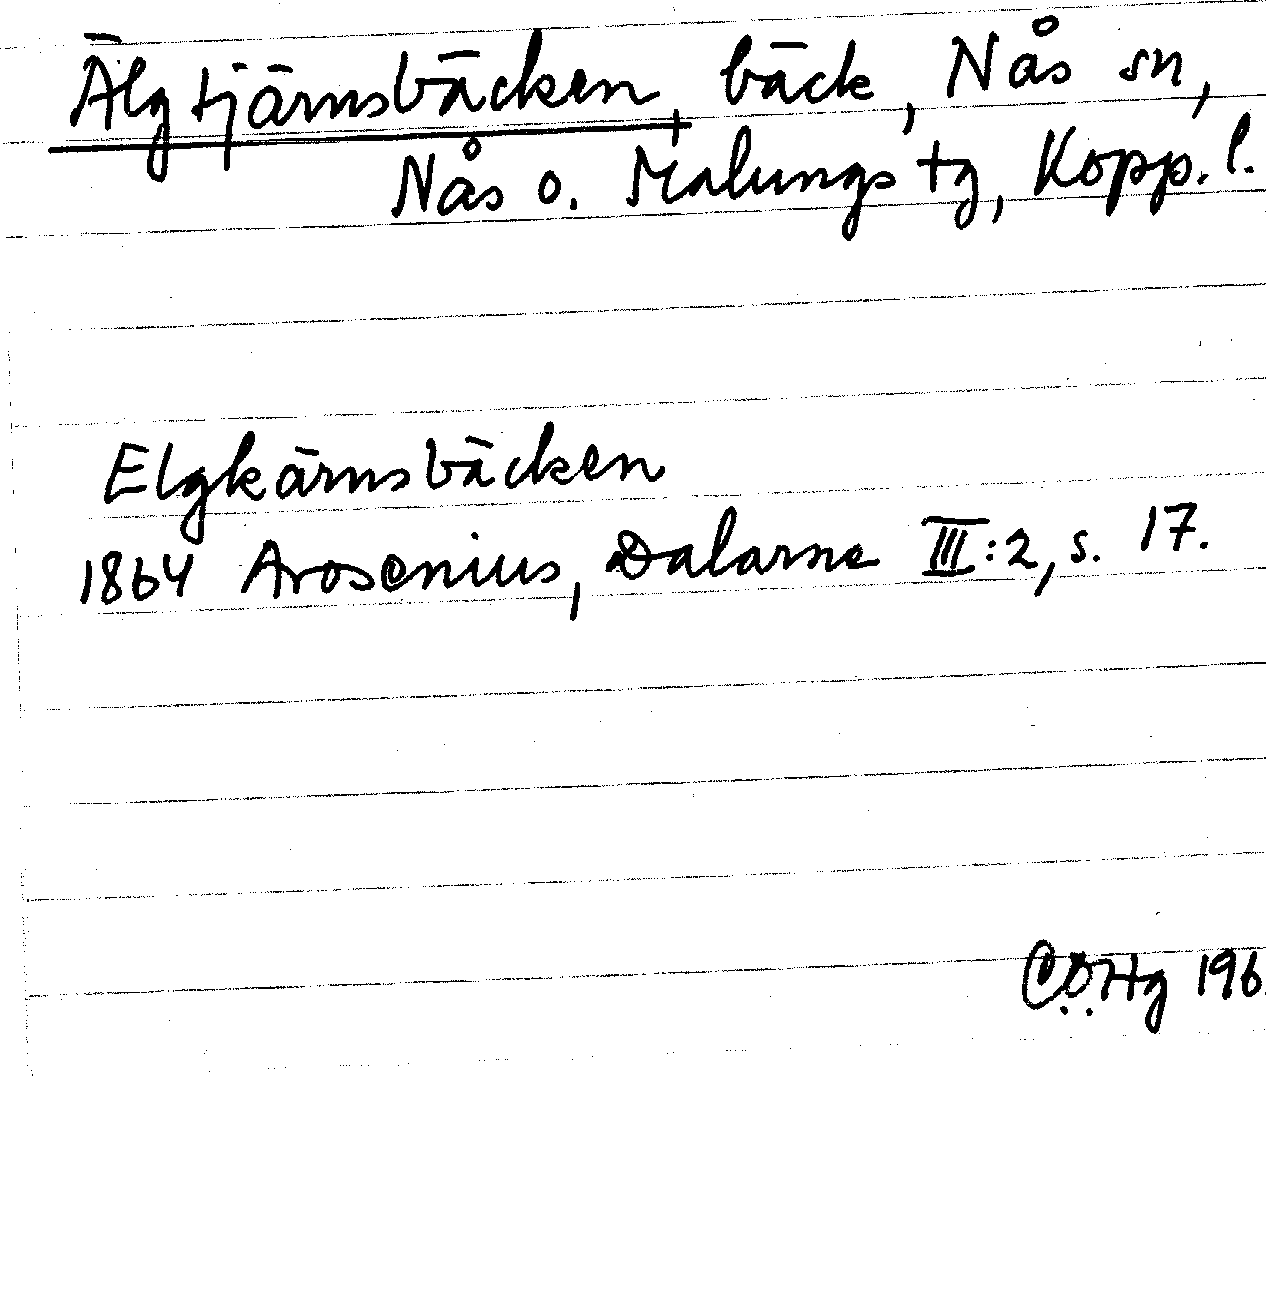 Älgtjärnsbäcken, bäck, Nås sn,
Nås o. Malungs tg, Kopp. l.
Elgkärnsbäcken
1864 Arosenius, Dalarne III:2, s. 17.
CÖHg 196